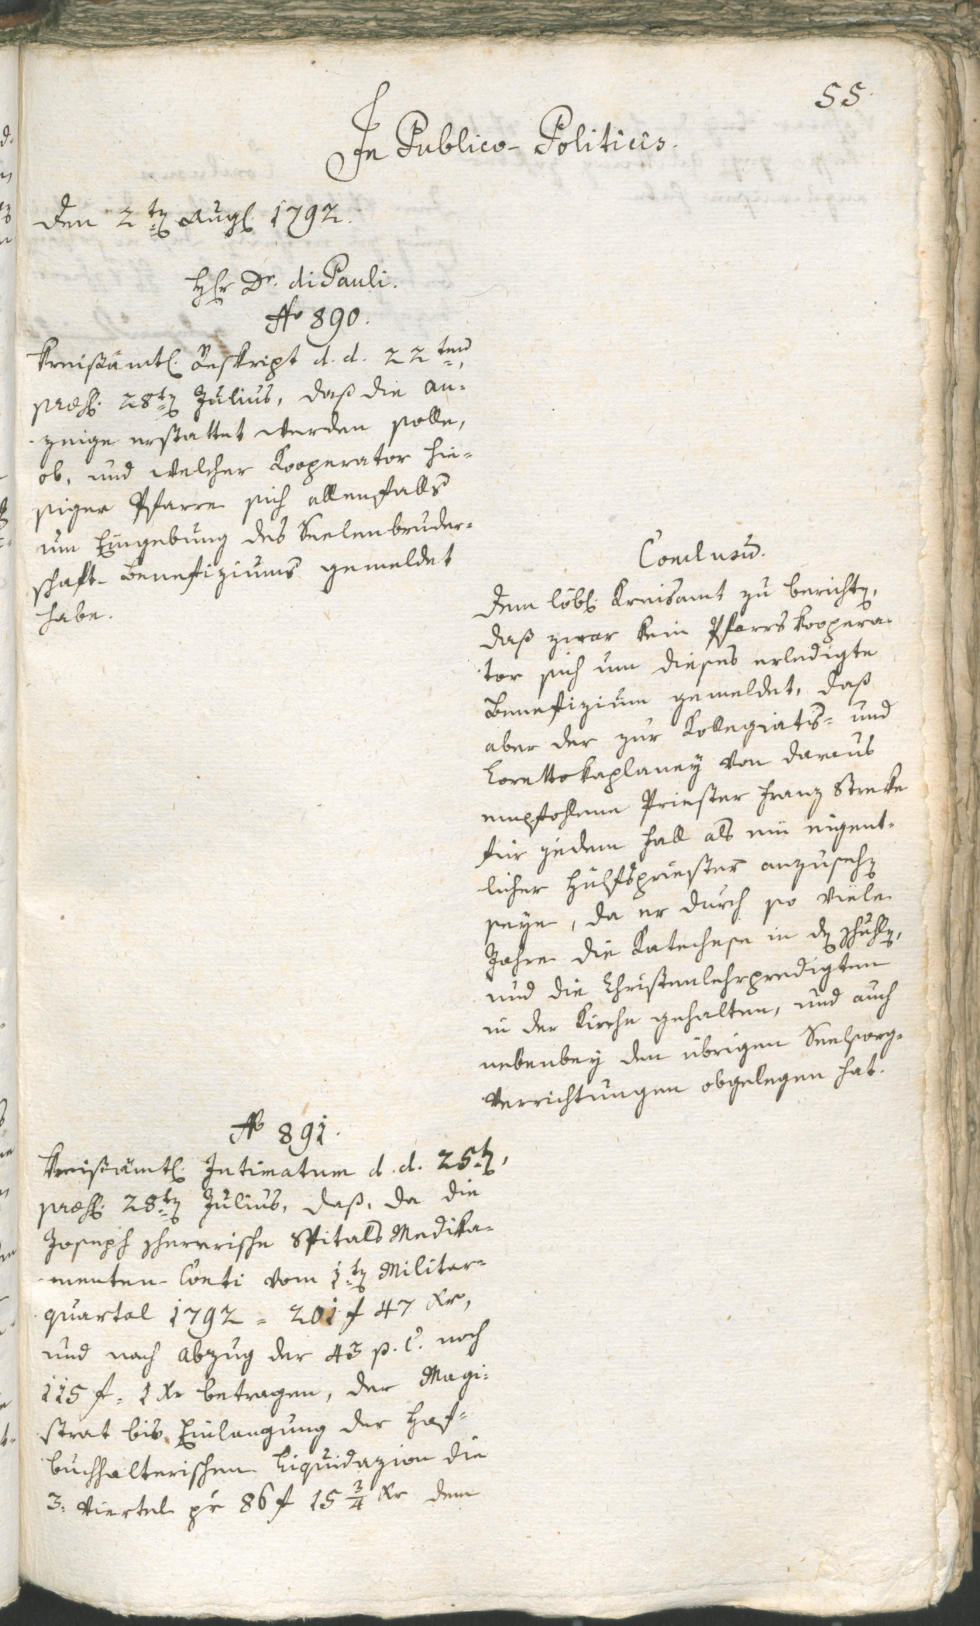 55.
In Publico-Politicis.
Den 2ten Aug. 1792.
Hr Dr. di Pauli.
No 890.
Kreißämtl. Reskript d. d. 22ten,
præs. 28ten Julius, daß die An-
zeige erstattet werden solle,
ob, und welcher Kooperator hie-
siger Pfarre sich allenfalls
um Eingebung des Seelenbruder-
schaft-Benefiziums gemeldet
habe.
Conclusum.
Dem löbl. Kreisamt zu berichten,
daß zwar kein Pfarrskoopera-
tor sich um dieses erledigte
Benefizium gemeldet, daß
aber der zur Kollegiats- und
Lorettokaplaney von daraus
empfohlene Priester Franz Streke
für jedem Fall als ein eigent-
licher Hülfspriester anzusehen
seye, da er durch so viele
Jahre die Katechese in den Schulen,
und die Christenlehrpredigten
in der Kirche gehalten, und auch
nebenbey den übrigen Seelsorg-
verrichtungen obgelegen hat.
No 891.
Kreisämtl. Intimatum d. d. 25ten,
præs. 28ten Julius, daß, da die
Joseph Scherrische Spitals Medika-
menten-Conti vom 1ten Militar-
quartal 1792 = 201 f 47 Xr,
und nach Abzug der 43 p. C. noch
115 f = 1 Xr betragen, der Magi-
strat bis Einlangung der Hof-
buchhalterischen Liquidazion die
3. Viertel pr 86 f 15 3/4 Xr dem